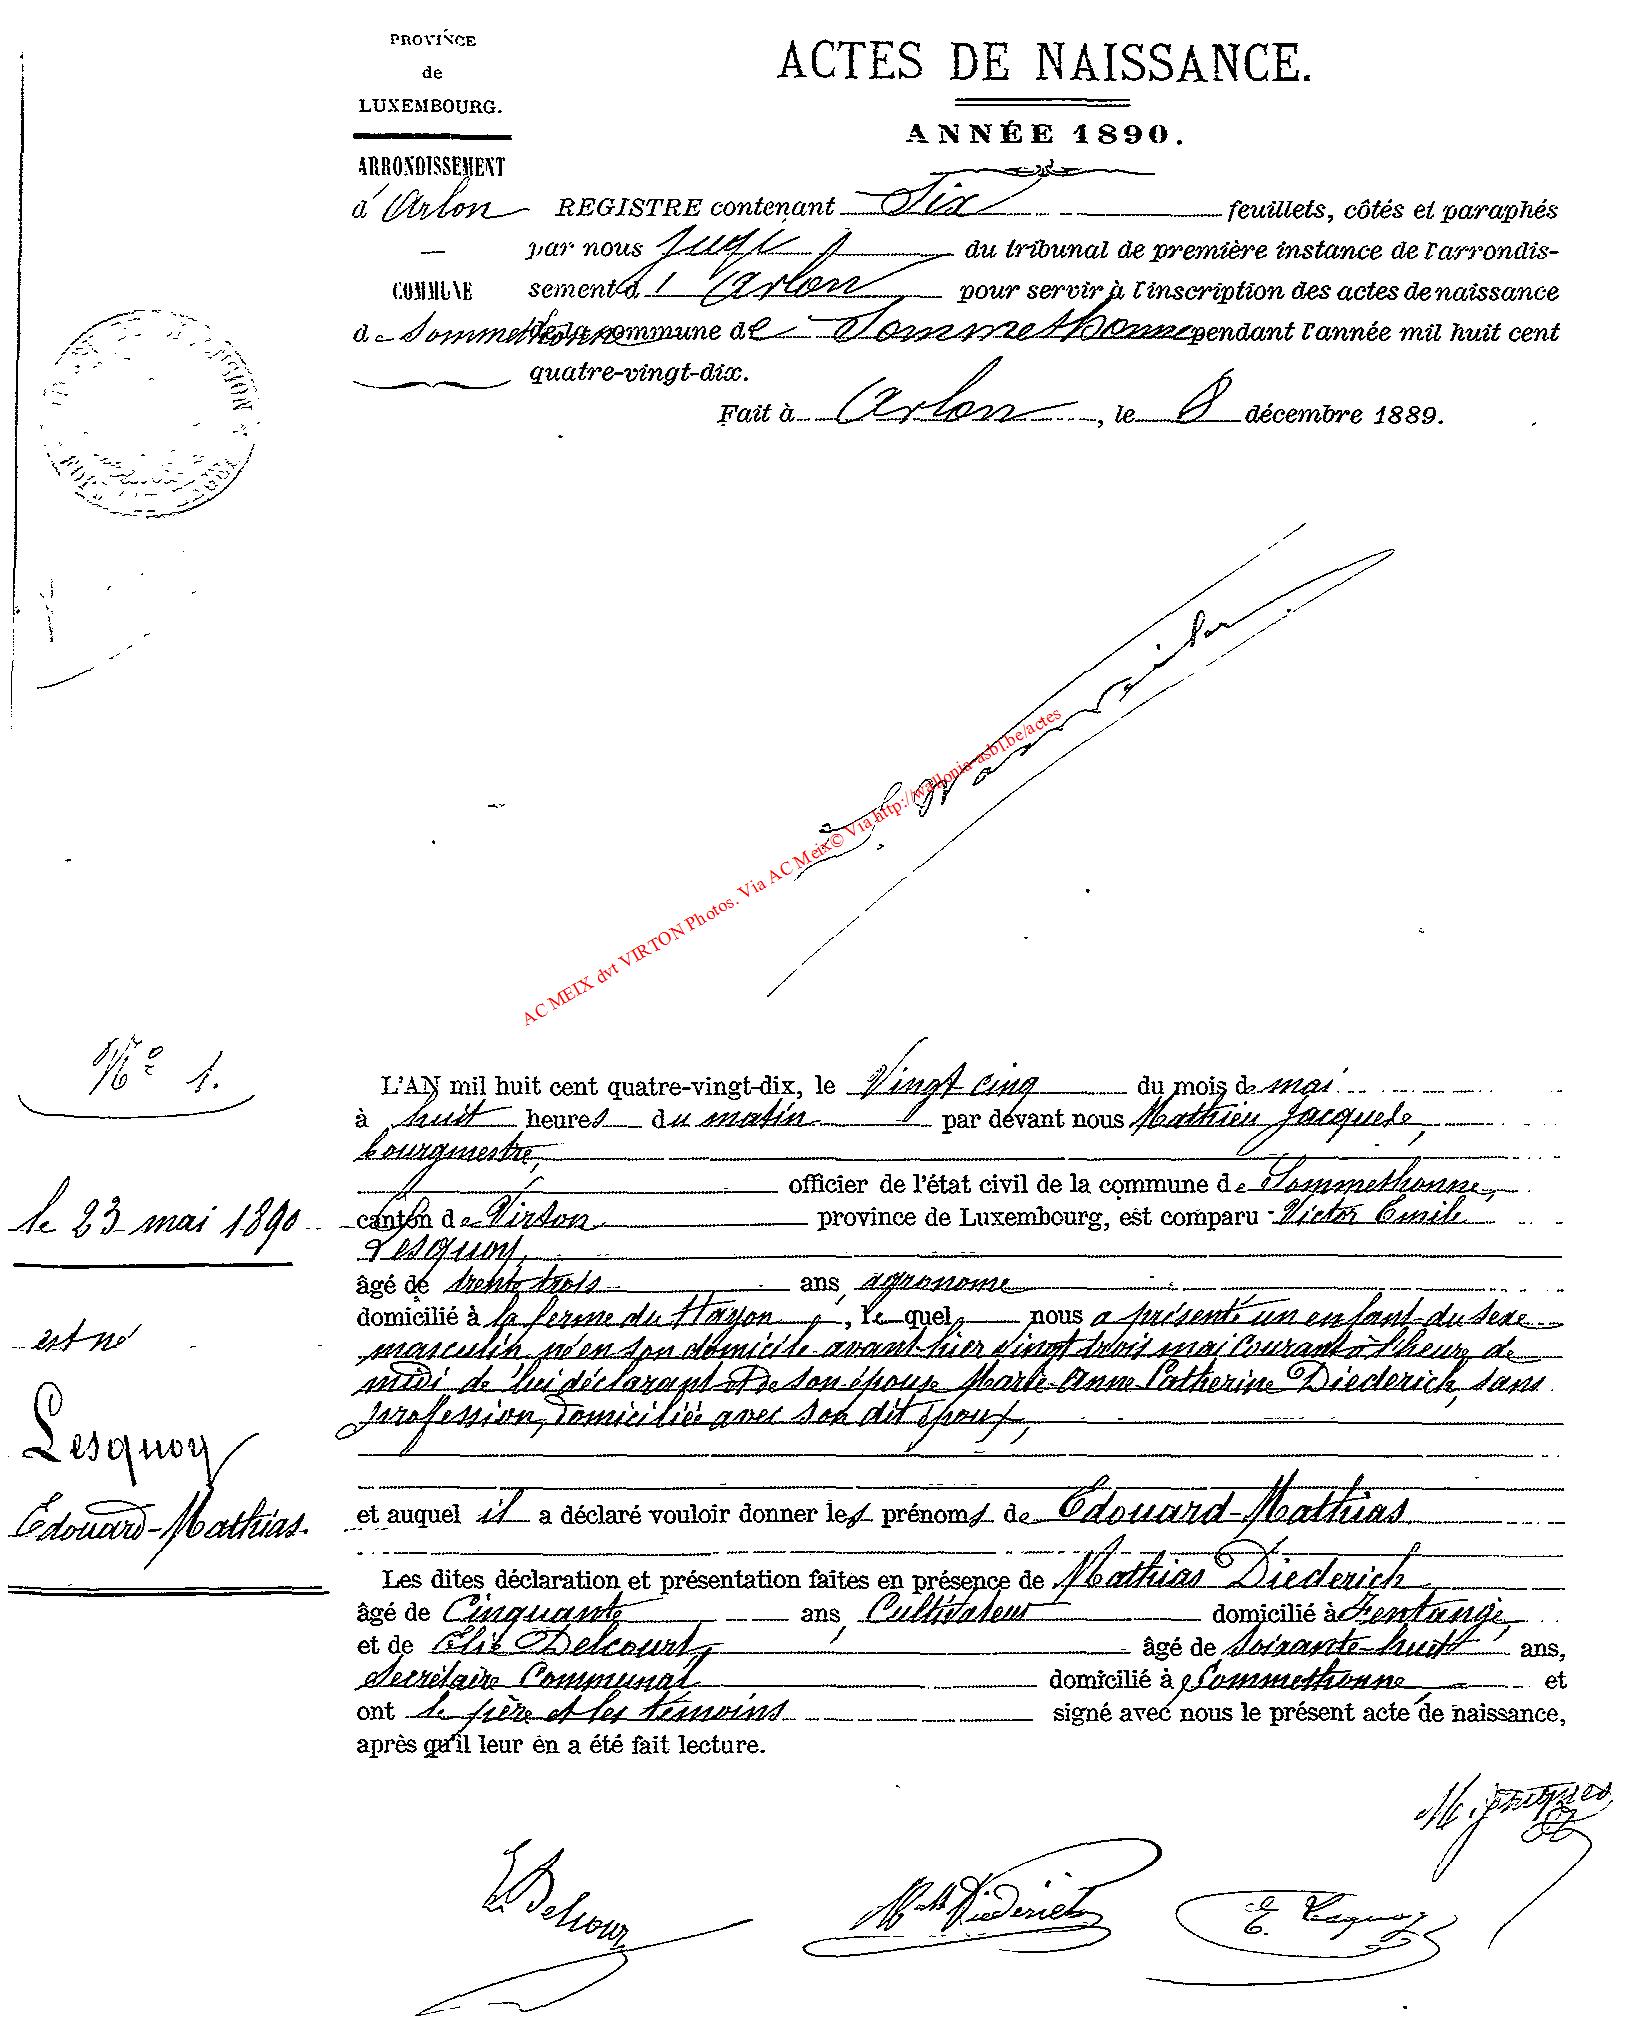 PROVINCE
de
LUXEMBOURG.
ARRONDISSEMENT
d'Arlon
COMMUNE
de Sommethonne
ACTES DE NAISSANCE.
ANNÉE 1890.
REGISTRE contenant Six feuillets, côtés et paraphés
par nous Juge du tribunal de première instance de l'arrondis-
sement d'Arlon pour servir à l'inscription des actes de naissance
de la commune de Sommethonne pendant l'année mil huit cent
quatre-vingt-dix.
Fait à Arlon, le 8 décembre 1889.
AC MEIX dvt VIRTON Photos. Via AC Meix© Via http://wallonia-asbl.be/actes
N° 1.
le 23 mai 1890
est né
Lesquoy
Edouard-Mathias.
L'AN mil huit cent quatre-vingt-dix, le Vingt cinq du mois de mai
à huit heures du matin par devant nous Mathieu Jacques,
bourgmestre,
officier de l'état civil de la commune de Sommethonne,
canton de Virton province de Luxembourg, est comparu Victor Emile
Lesquoy,
âgé de trente trois ans, agronome
domicilié à la ferme du Hayon, le quel nous a présenté un enfant du sexe
masculin né en son domicile avant-hier vingt trois mai courant à l'heure de
midi de lui déclarant et de son épouse Marie-Anne Catherine Diederich, sans
profession, domiciliée avec son dit époux,
et auquel il a déclaré vouloir donner les prénoms de Edouard-Mathias
Les dites déclaration et présentation faites en présence de Mathias Diederich,
âgé de Cinquante ans, Cultivateur domicilié à Fentange,
et de Elie Delcourt, âgé de soixante-huit ans,
Secrétaire Communal domicilié à Sommethonne, et
ont le père et les témoins signé avec nous le présent acte de naissance,
après qu'il leur en a été fait lecture.
M. Jacques
E. Delcour
Mth Diederich
E. Lesquoy